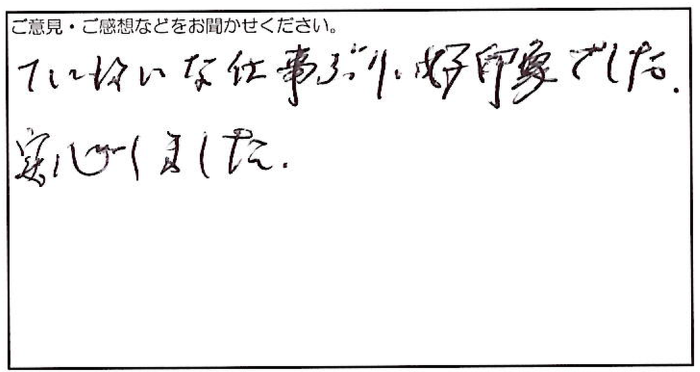 ご意見・ご感想などをお聞かせください。
ていねいな仕事ぶり、好印象でした.
安心しました.